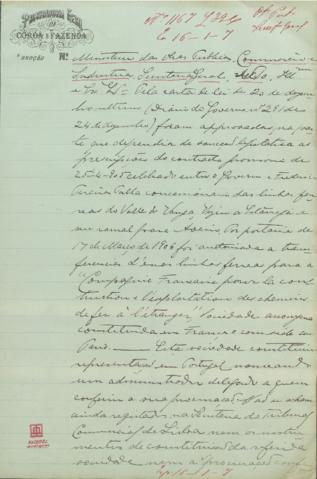 Procuradoria Geral
DA
COROA E FAZENDA
Nº 1167 L 39 C
E 16-1-7
SECÇÃO Nº
Ministerio das Obras Publicas, Commercio e
Industria, Secretaria Geral,
e Ex. Sr. Pela carta de lei de 20 de dezem
bro ultimo (Diario do Governo nº 291 de
24 de dezembro) foram approvadas, na par
te que dependia de sancção legislativa as
prescripções do contracto provisorio de
25-4-905 celebrado entre o Governo e Frederico
Pereira Palha concessionario das linhas fer
reas do Valle do Vouga, Espinho a
e seu ramal para Aveiro. Por portaria de
17 de Março de 1906 foi autorisada a trans
ferencia d'essas linhas ferreas para a
"Compagnie Française pour la cons
truction et l'exploitation des chemins
de fer à l'étranger", sociedade anonyma
constituida em França e com séde em
Paris. Esta sociedade constituiu
representação em Portugal nomeando
um administrador delegado a quem
conferiu a sua procuração. Não se acham
ainda registados na Secretaria do Tribunal
Commercial de Lisboa nem os instru
mentos de constituição da referida
sociedade nem a procuração conf
16-1-7